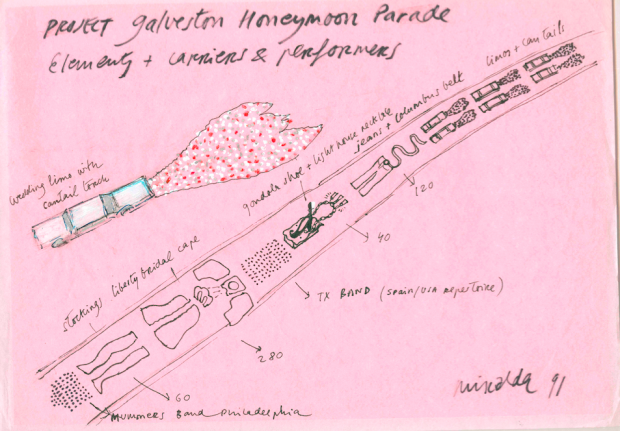 PROJECT Galveston Honeymoon Parade
Elements + carriers & performers
limos + cantails
jeans + columbus belt
gondola shoe + light house necklace
wedding limo with
cantail torch
120
40
stockings liberty bridal cape
TX BAND (Spain/USA repertoire)
280
60
Mummers Band Philadelphia
miralda 91